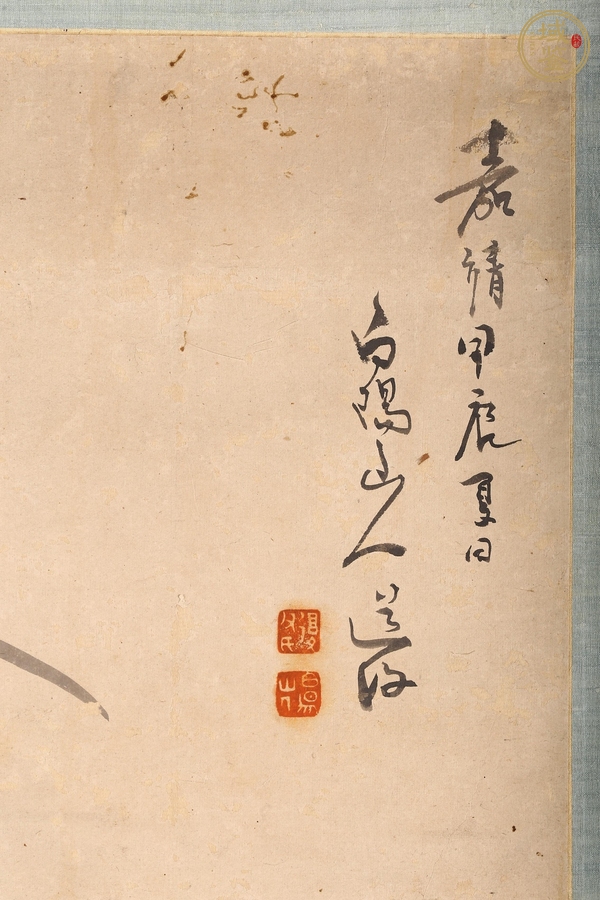 嘉靖甲辰夏日
白陽山人道復
復父氏
白陽山人